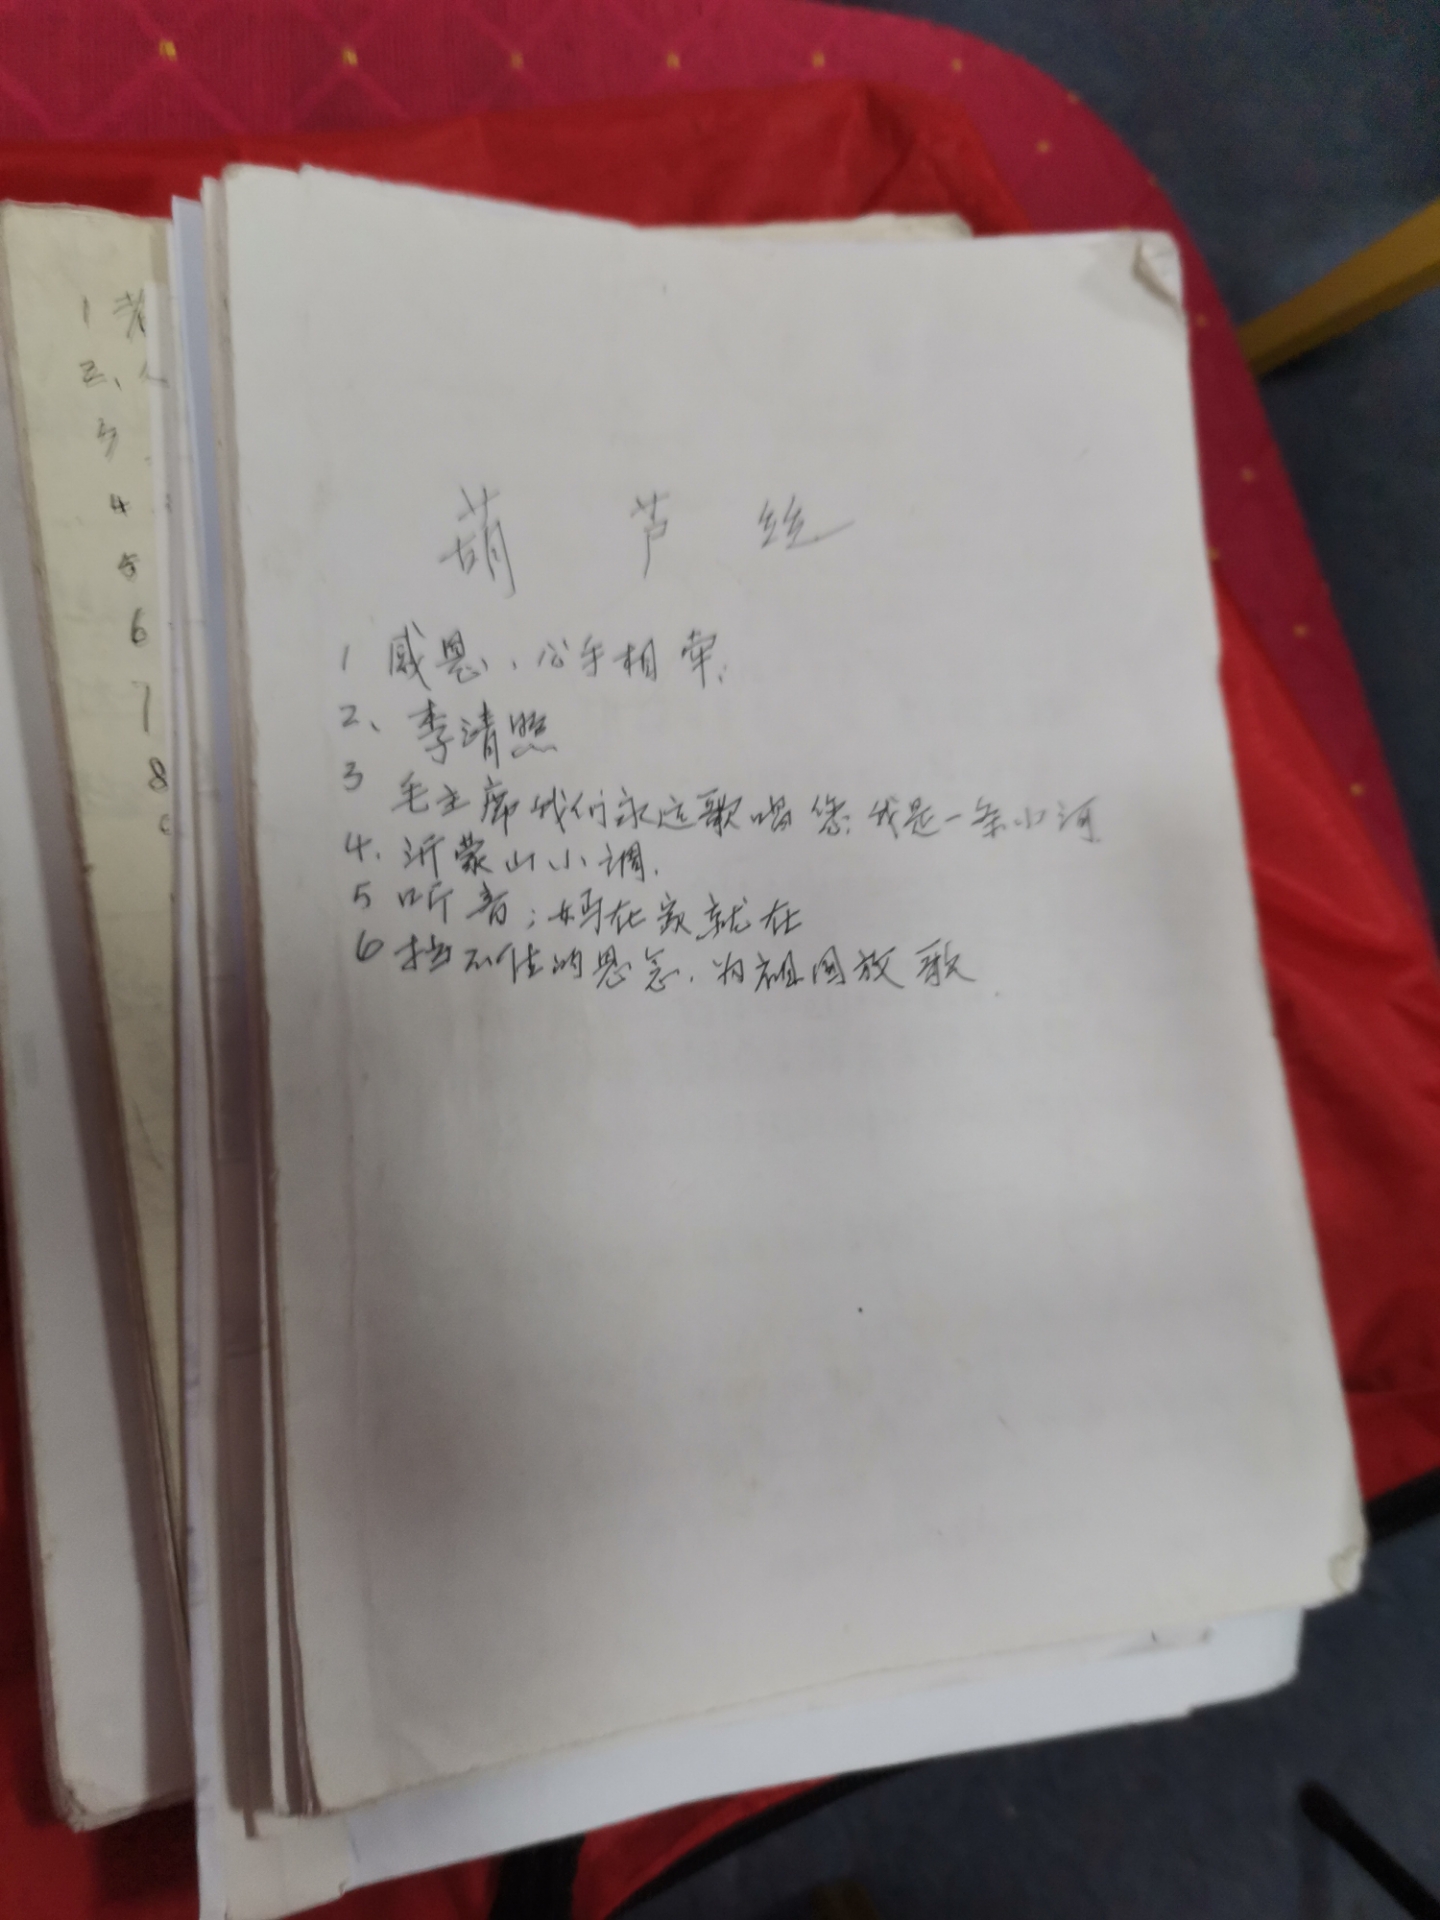 葫芦丝
1 感恩、心手相牵.
2、李清照
3 毛主席我们永远歌唱您.我是一条小河
4. 沂蒙山小调.
5 听音;妈在家就在
6 挡不住的思念.为祖国放歌
1
2、
3
4
5
6
7
8